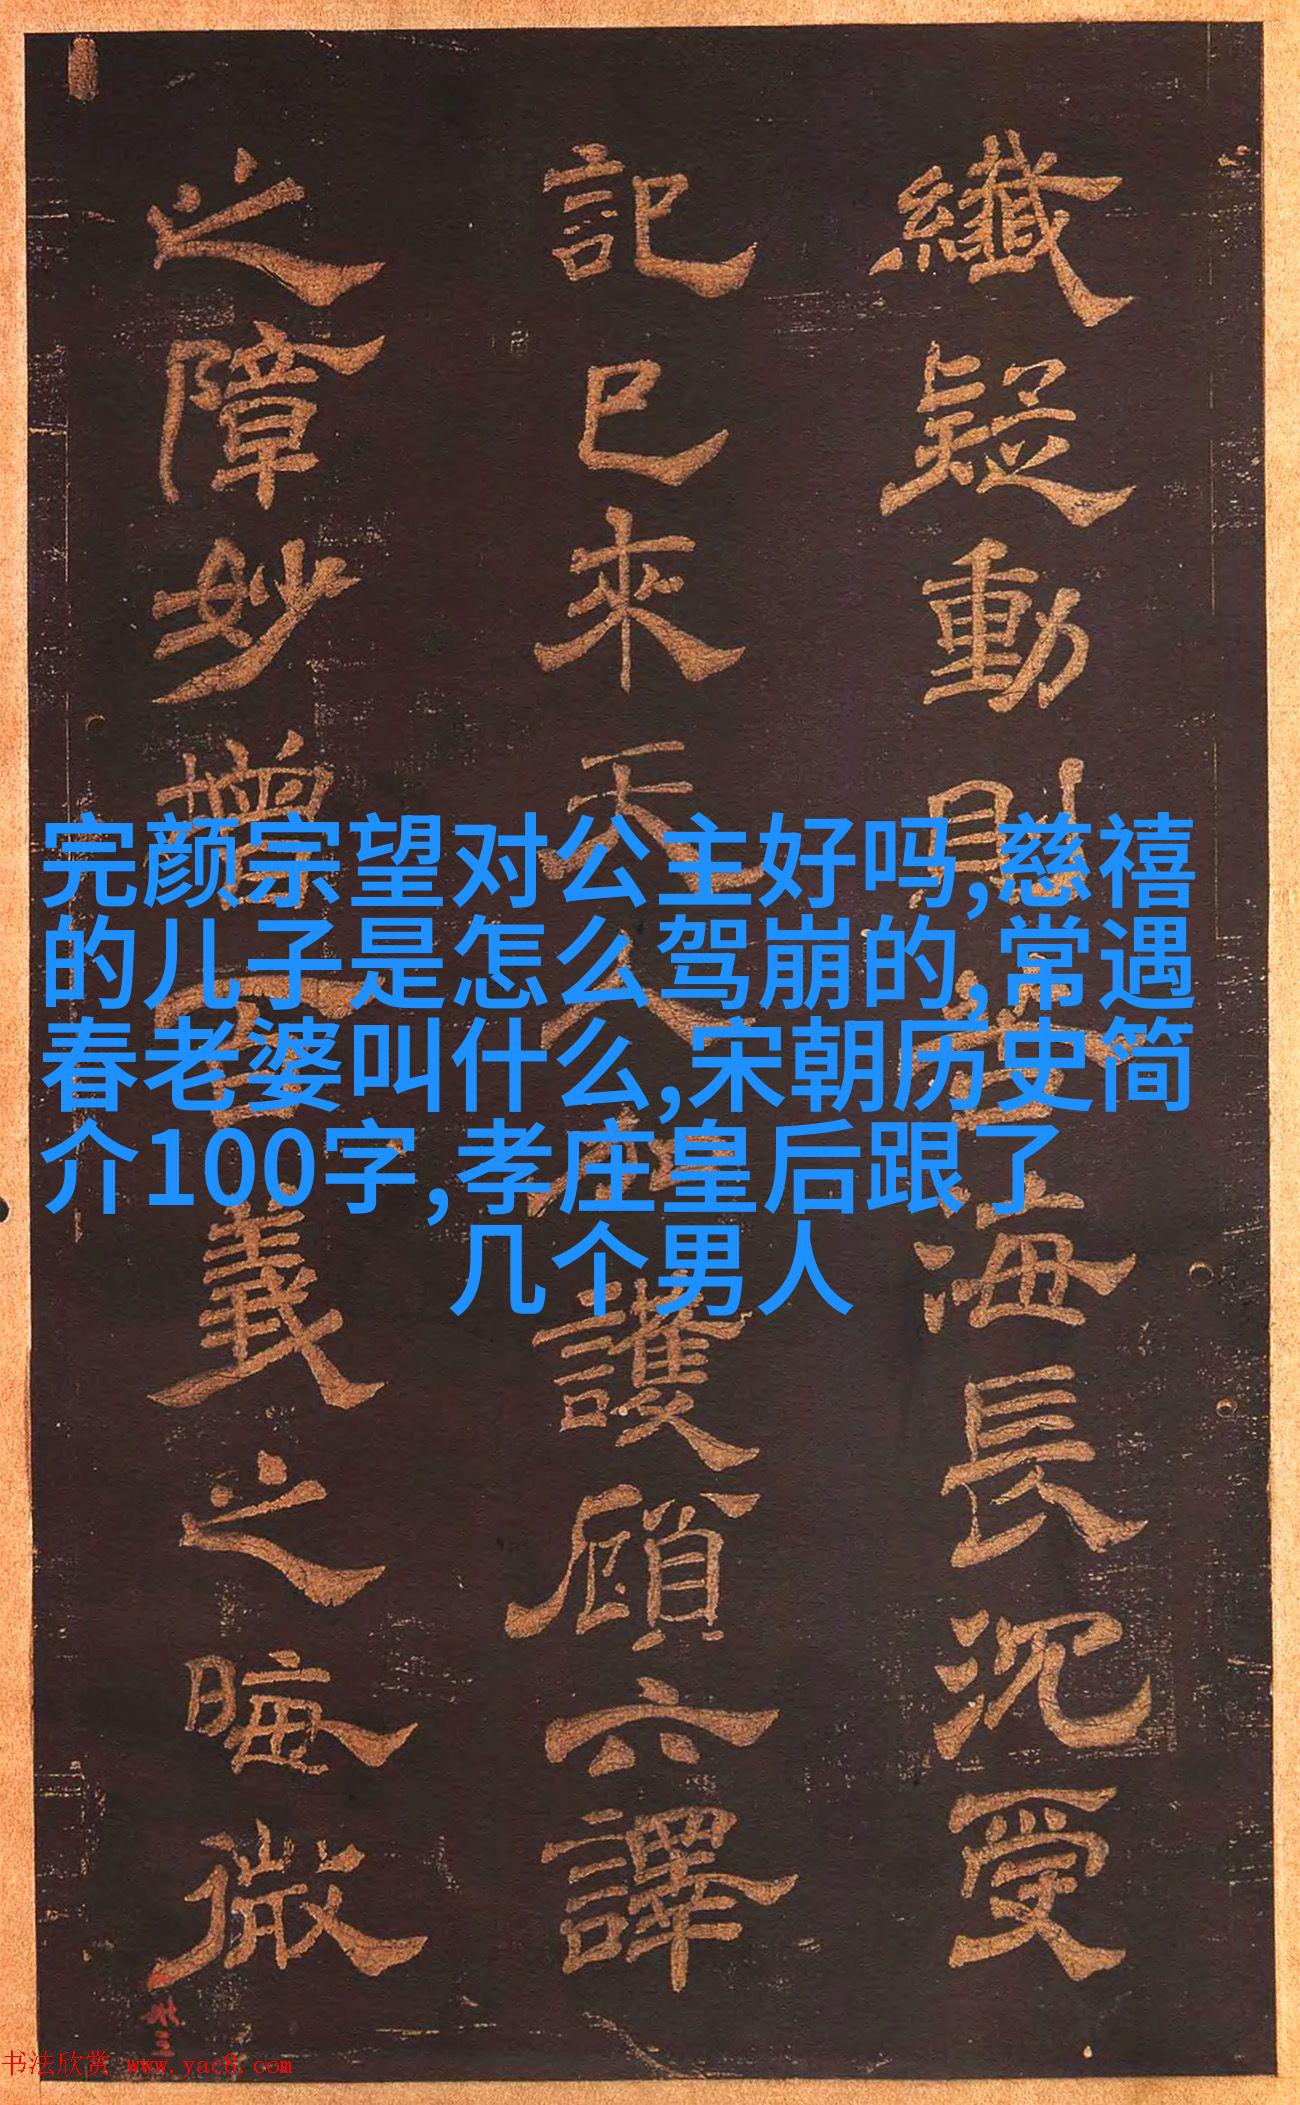 完颜宗望对公主好吗,慈禧
的儿子是怎么驾崩的,常遇
春老婆叫什么,宋朝历史简
介100字,孝庄皇后跟了
几个男人
纖疑動則 海長沉受
記已來天人 護顧六譯
之障妙增 義之晦微
书法欣赏 www.yac8.com